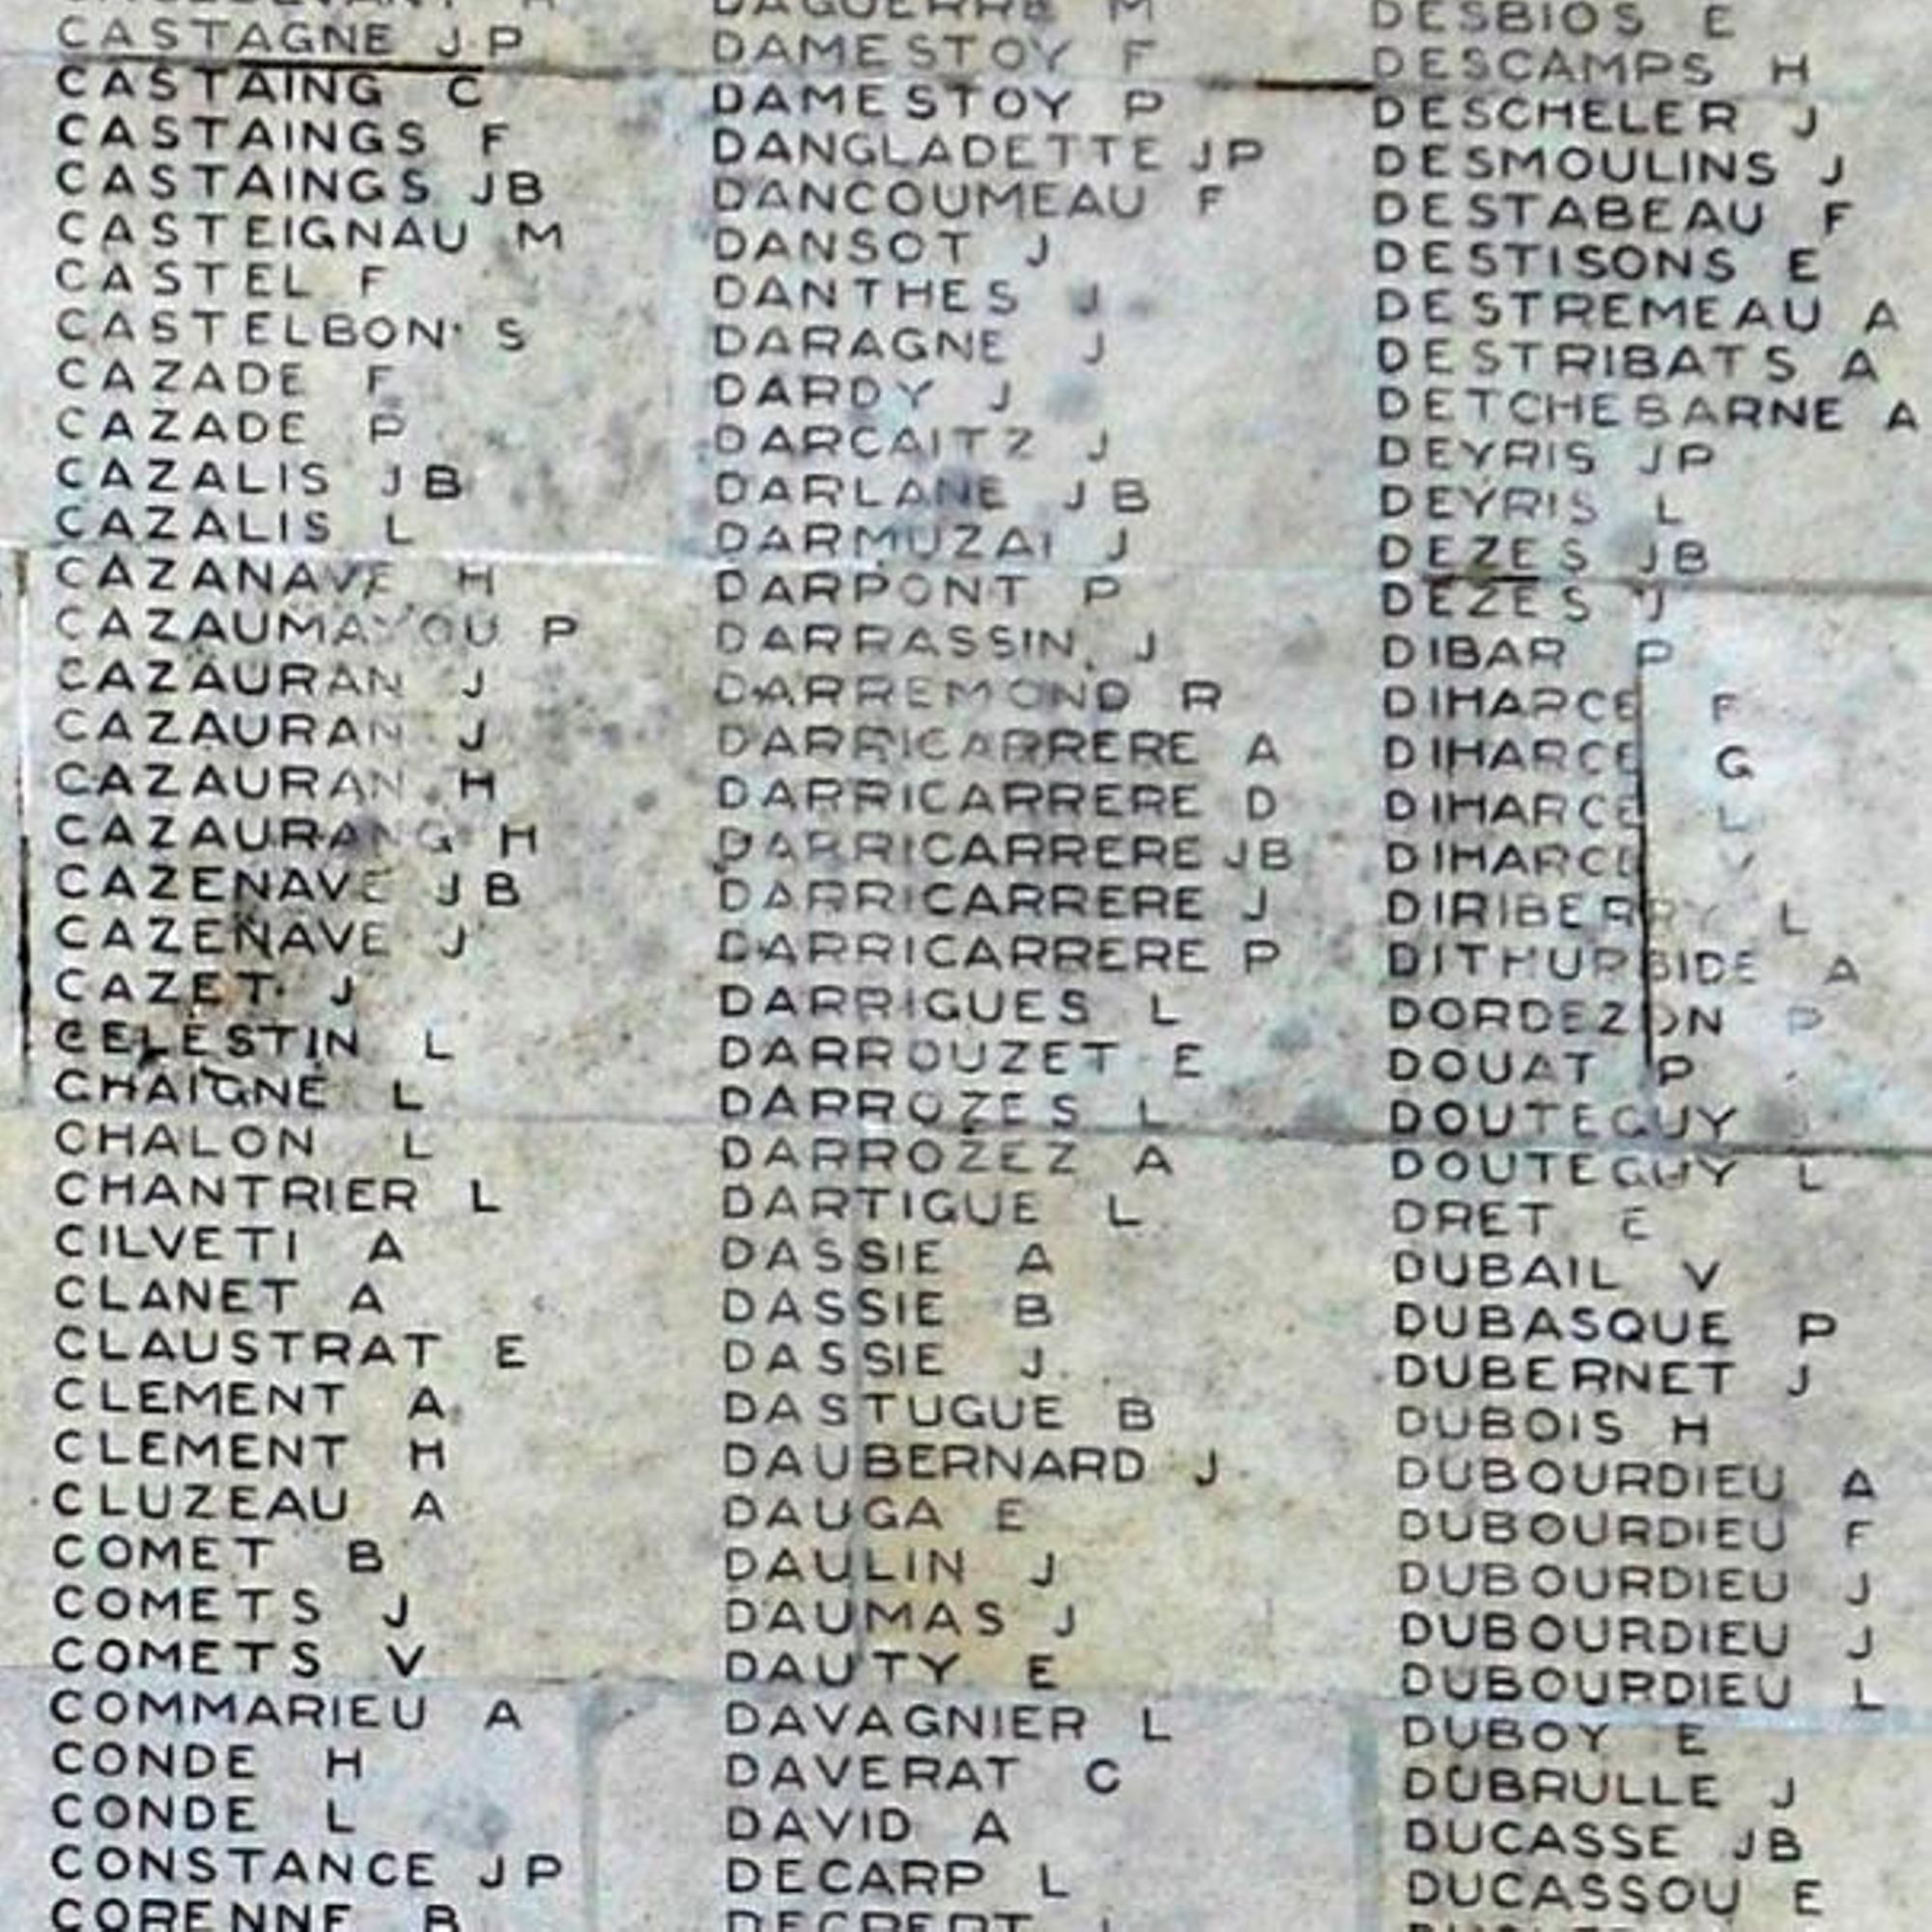 CASTAGNE JP
CASTAING C
CASTAINGS F
CASTAINGS JB
CASTEIGNAU M
CASTEL F
CASTELBON S
CAZADE F
CAZADE P
CAZALIS JB
CAZALIS L
CAZANAVE H
CAZAUMAYOU P
CAZAURAN J
CAZAURAN J
CAZAURAN H
CAZAURANG H
CAZENAVE JB
CAZENAVE J
CAZET J
CELESTIN L
CHAIGNE L
CHALON L
CHANTRIER L
CILVETI A
CLANET A
CLAUSTRAT E
CLEMENT A
CLEMENT H
CLUZEAU A
COMET B
COMETS J
COMETS V
COMMARIEU A
CONDE H
CONDE L
CONSTANCE JP
CORENNE B
DAGUERRE M
DAMESTOY F
DAMESTOY P
DANGLADETTE JP
DANCOUMEAU F
DANSOT J
DANTHES J
DARAGNE J
DARDY J
DARCAITZ J
DARLANE JB
DARMUZAI J
DARPONT P
DARRASSIN J
DARREMOND R
DARRICARRERE A
DARRICARRERE D
DARRICARRERE JB
DARRICARRERE J
DARRICARRERE P
DARRIGUES L
DARROUZET E
DARROZES L
DARROZEZ A
DARTIGUE L
DASSIE A
DASSIE B
DASSIE J
DASTUGUE B
DAUBERNARD J
DAUGA E
DAULIN J
DAUMAS J
DAUTY E
DAVAGNIER L
DAVERAT C
DAVID A
DECARP L
DESBIOS E
DESCAMPS H
DESCHELER J
DESMOULINS J
DESTABEAU F
DESTISONS E
DESTREMEAU A
DESTRIBATS A
DETCHEBARNE A
DEYRIS JP
DEYRIS L
DEZES JB
DEZES J
DIBAR P
DIHARCE F
DIHARCE G
DIHARCE L
DIHARCE V
DIRIBERRY L
DITHURBIDE A
DORDEZON P
DOUAT P
DOUTEGUY
DOUTEGUY L
DRET E
DUBAIL V
DUBASQUE P
DUBERNET J
DUBOIS H
DUBOURDIEU A
DUBOURDIEU F
DUBOURDIEU J
DUBOURDIEU J
DUBOURDIEU L
DUBOY E
DUBRULLE J
DUCASSE JB
DUCASSOU E